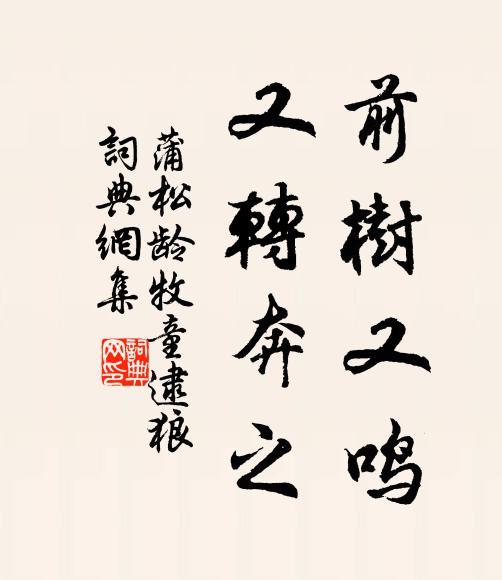 前樹又鸣
又轉奔之
蒲松龄牧童逮狼
詞典網集
詞典
网印